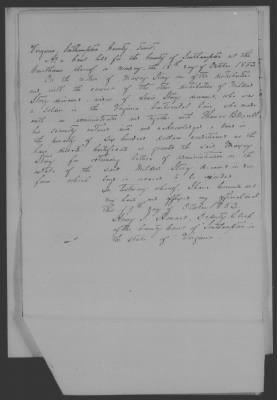 Virginia, Southampton County Towit:
At a Court held for the County of Southampton at the
Courthouse thereof on Monday, the 18th day of October 1852
On the motion of Mowry Story one of the distributees
and with the consent of the other distributees of Mildred
Story deceased widow of Story deceased, who was
a soldier in the Virginia Continental line, who made
oath as administrator and together with Thomas
his security entered into and acknowledged a bond in
the penalty of Six hundred dollars conditioned as the
law directs Certificate is granted the said Mowry
Story for obtaining letters of administration on the
estate of the said Mildred Story deceased in due
form which bond is ordered to be recorded
In Testimony whereof, I have hereunto set
my hand and affixed my official seal
this day of October 1852
Deputy Clerk
of the County Court of Southampton in
the State of Virginia